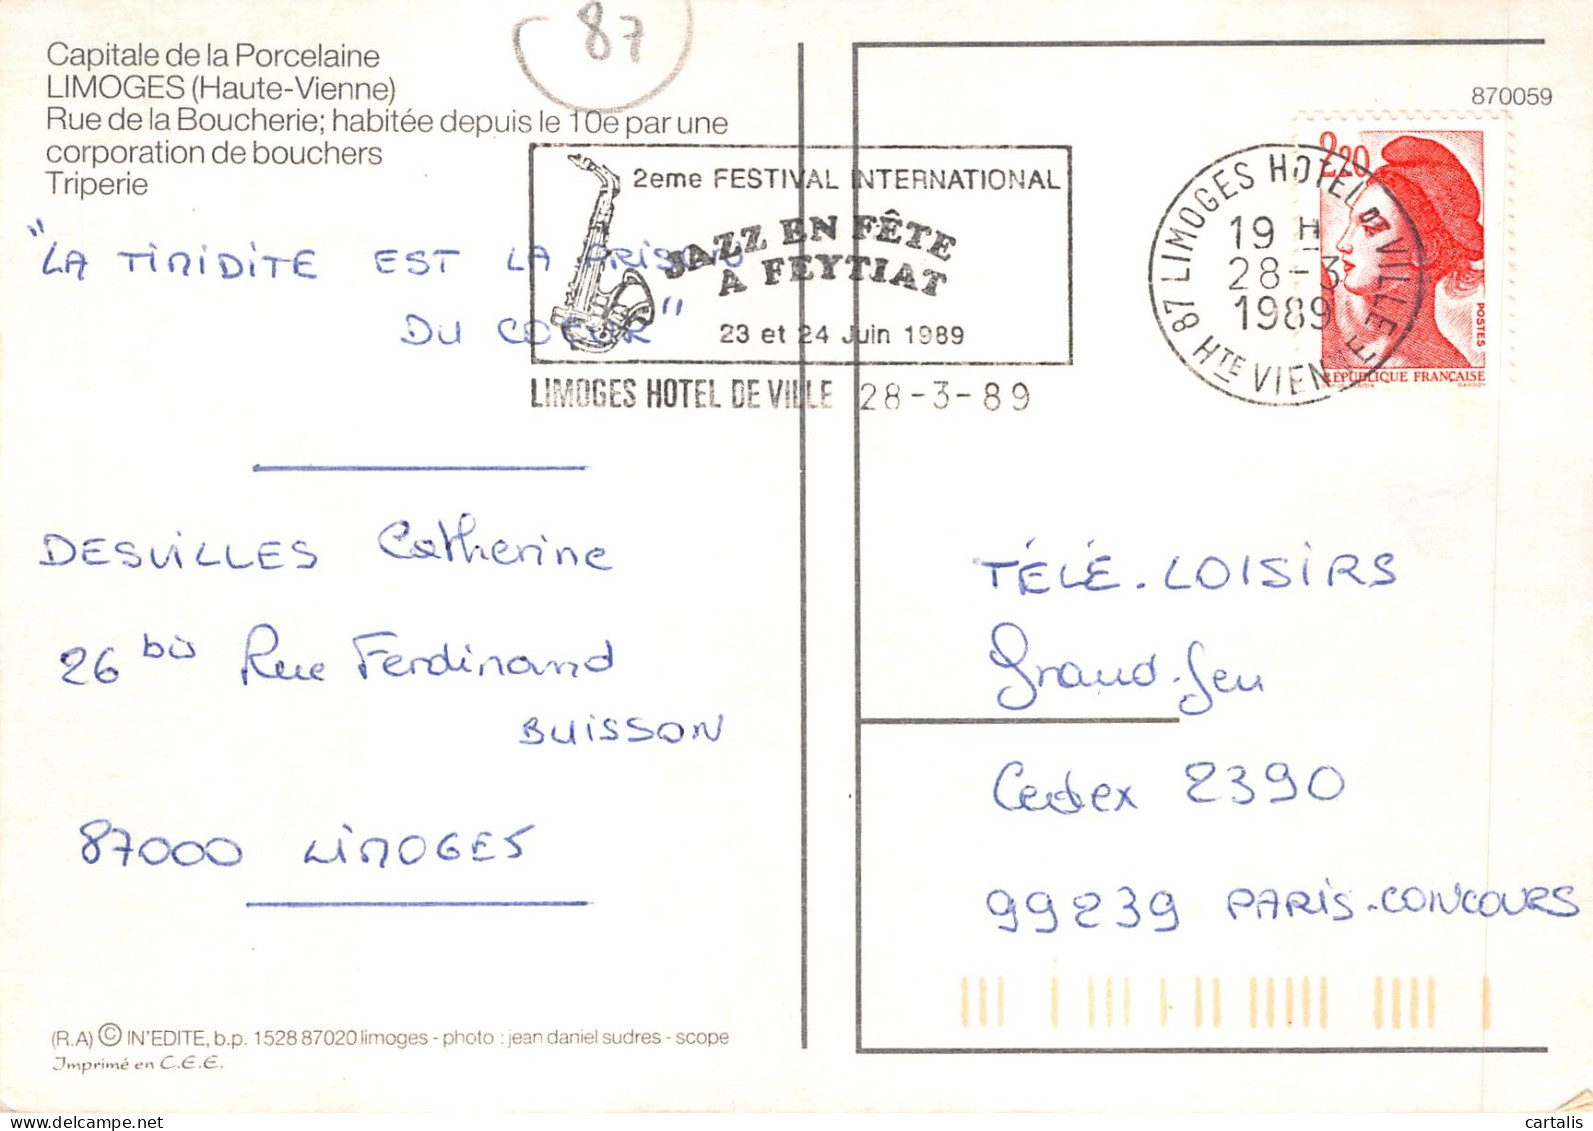 87
Capitale de la Porcelaine
LIMOGES (Haute-Vienne)
Rue de la Boucherie; habitée depuis le 10e par une
corporation de bouchers
Triperie
"LA TIMIDITE EST LA PRISON
DU COEUR"
2eme FESTIVAL INTERNATIONAL
JAZZ EN FÊTE
A FEYTIAT
23 et 24 Juin 1989
LIMOGES HOTEL DE VILLE 28-3-89
870059
2,20
POSTES
RÉPUBLIQUE FRANÇAISE
87 LIMOGES HOTEL DE VILLE
19 H
28-3
1989
HTE VIENNE
DESVILLES Catherine
26 bis Rue Ferdinand
BUISSON
87000 LIMOGES
TÉLÉ-LOISIRS
Grand-Jeu
Cedex 2390
99239 PARIS-CONCOURS
(R.A) © IN'EDITE, b.p. 1528 87020 limoges - photo : jean daniel sudres - scope
Imprimé en C.E.E.
cartalis